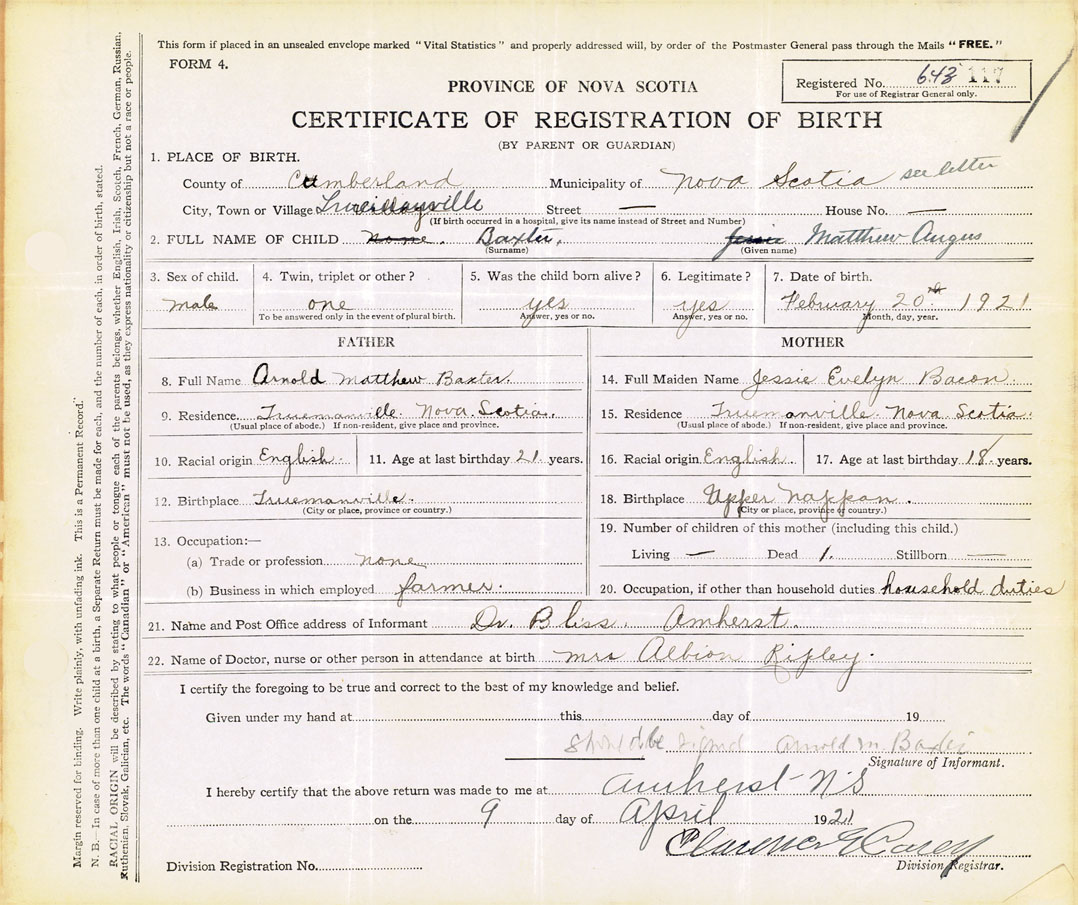 This form if placed in an unsealed envelope marked "Vital Statistics" and properly addressed will, by order of the Postmaster General pass through the Mails "FREE."
FORM 4.
Registered No. 643 117
For use of Registrar General only.
PROVINCE OF NOVA SCOTIA
CERTIFICATE OF REGISTRATION OF BIRTH
(BY PARENT OR GUARDIAN)
1. PLACE OF BIRTH.
County of Cumberland Municipality of Nova Scotia see letter
City, Town or Village Street — House No. —
(If birth occurred in a hospital, give its name instead of Street and Number)
2. FULL NAME OF CHILD none. Baxter, Jessie Matthew Angus
(Surname) (Given name)
3. Sex of child. 4. Twin, triplet or other? 5. Was the child born alive? 6. Legitimate? 7. Date of birth.
male one yes yes February 20th 1921
To be answered only in the event of plural birth. Answer, yes or no. Answer, yes or no. Month, day, year.
FATHER
8. Full Name Arnold Matthew Baxter.
9. Residence Truemanville. Nova Scotia.
(Usual place of abode.) If non-resident, give place and province.
10. Racial origin English. 11. Age at last birthday 21 years.
12. Birthplace Truemanville.
(City or place, province or country.)
13. Occupation:—
(a) Trade or profession none
(b) Business in which employed farmer.
MOTHER
14. Full Maiden Name Jessie Evelyn Bacon.
15. Residence Truemanville. Nova Scotia.
(Usual place of abode.) If non-resident, give place and province.
16. Racial origin English. 17. Age at last birthday 18 years.
18. Birthplace Upper Nappan.
(City or place, province or country.)
19. Number of children of this mother (including this child.)
Living — Dead 1. Stillborn —
20. Occupation, if other than household duties household duties
21. Name and Post Office address of Informant Dr. Bliss. Amherst.
22. Name of Doctor, nurse or other person in attendance at birth Mrs Albion Ripley.
I certify the foregoing to be true and correct to the best of my knowledge and belief.
Given under my hand at this day of 19
Should be signed Arnold M. Baxter
Signature of Informant.
I hereby certify that the above return was made to me at Amherst N.S
on the 9 day of April 1921
Clarence E Casey
Division Registrar.
Division Registration No.
Margin reserved for binding. Write plainly, with unfading ink. This is a Permanent Record.
N. B.—In case of more than one child at a birth, a Separate Return must be made for each, and the number of each, in order of birth, stated.
RACIAL ORIGIN will be described by stating to what people or tongue each of the parents belongs, whether English, Irish, Scotch, French, German, Russian,
Ruthenian, Slovak, Galician, etc. The words "Canadian" or "American" must not be used, as they express nationality or citizenship but not a race or people.